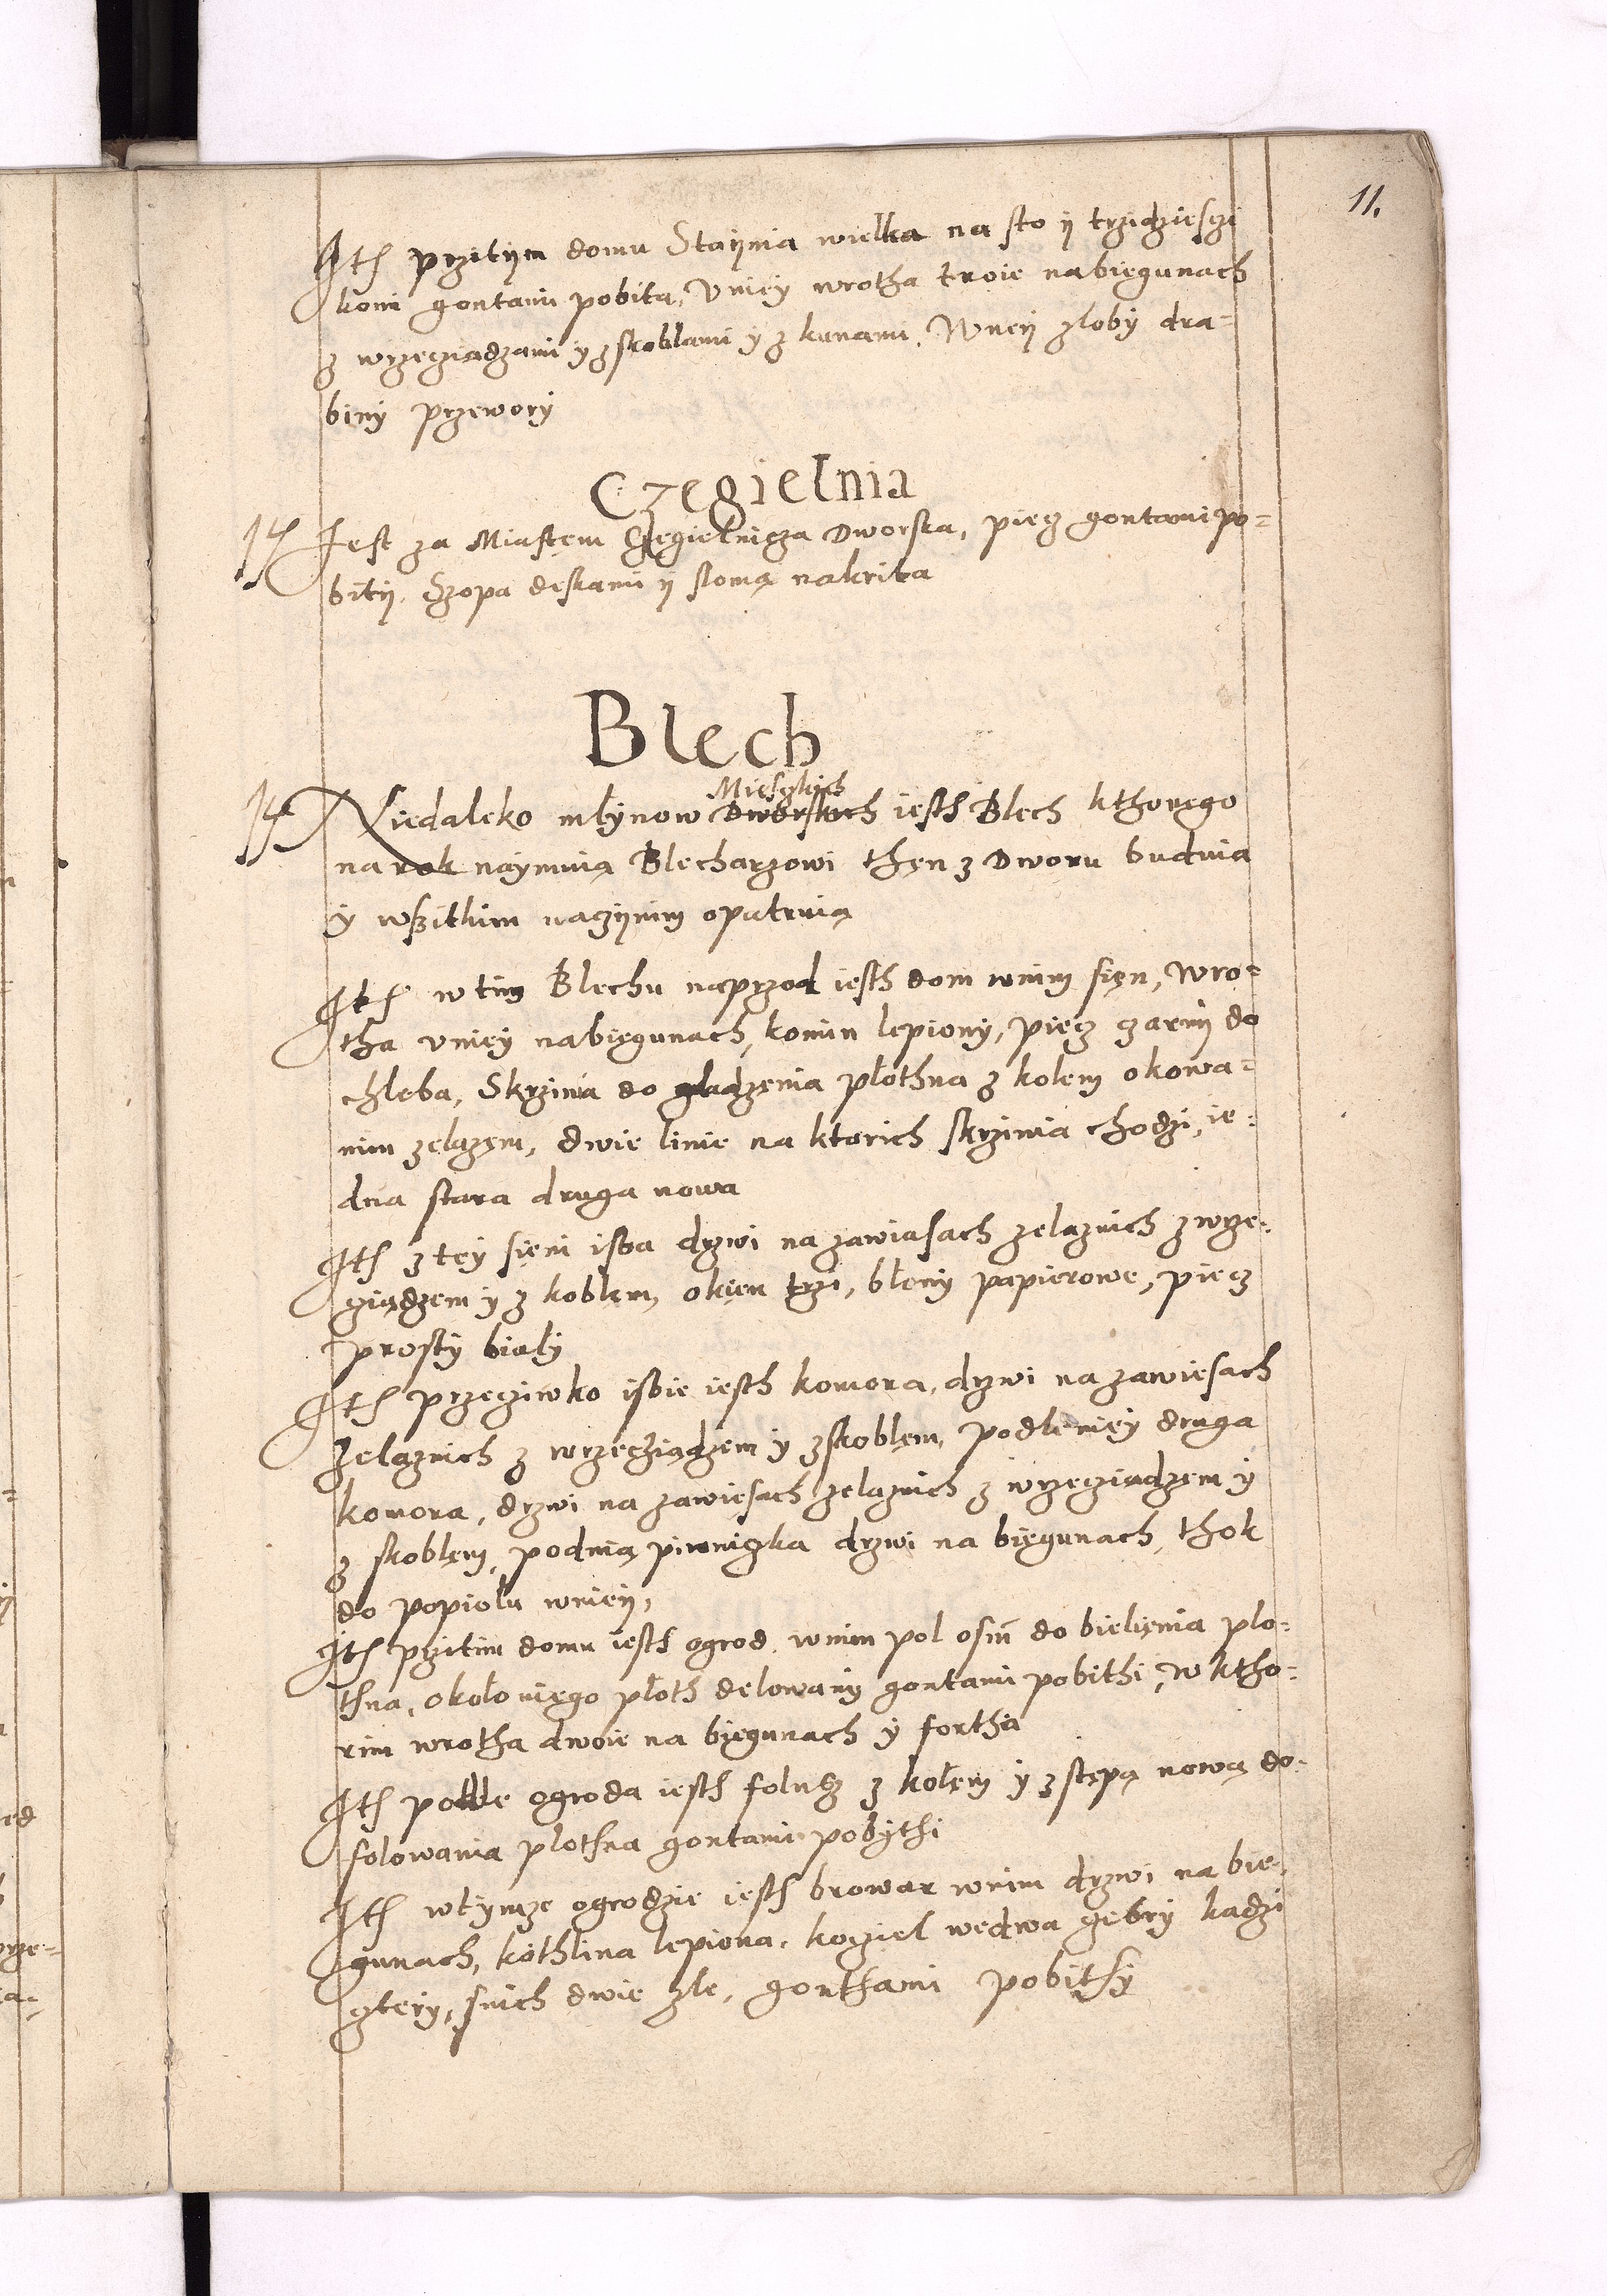 11.
Ith przitym domu Staynia wielka na sto y trzidziesczi
koni gontami pobita, Vniey wrotha troie nabiegunach
z wrzecziądzami y zskoblami y z kunami. Wney zloby dra-
biny przewory
Czegielnia
Jest za Miastem Czegielnicza Dworska, piecz gontami po-
bity. Szopa deskami y słomą nakrita
Blech
Miesczkich
Niedaleko młynow Dworskich iesth Blech kthorego
na rok naymuią Blecharzowi then z Dworu buduia
y wszitkim naczynim opatruią
Ith w tim Blechu naprzod iesth dom wnim sięn, Wro-
tha vniey nabięgunach, komin lepiony, piecz czarny do
chleba, Skrzinia do gładzęnia płothna z kolem okowa-
nim zelazem, dwie linie na ktorich skrzinia chodzi, ie-
dna stara druga nowa
Ith z tey sięni isba drzwi na zawiasach zelaznich zwrze-
cziądzem y z koblem, okien trzi, błony papierowe, piecz
prosty biały
Ith przecziwko isbie iesth komora, drzwi na zawiesach
Zelaznich z wrzecziądzem y zskoblęm, podle niey druga
komora, drzwi na zawiesach zelaznich z wrzecziadzem y
z skoblęm, podnią piwniczka drzwi na bięgunach, thok
do popiołu wniey,
Ith przitim domu iesth ogrod, wnim pol osm do bielienia plo-
thna, około niego płoth delowany gontami pobithi, w ktho-
rim wrotha dwoie na biegunach y fortha
Ith podle ogroda iesth folusz z kołem y z stępą nową do-
folowania plothna gontami pobythi
Ith wtymze ogrodzie iesth browar wnim drzwi na bie-
gunach, kothlina lepiona, koczieł wedwa czebry kadzi
cztery, snich dwie zle, gonthami pobithy